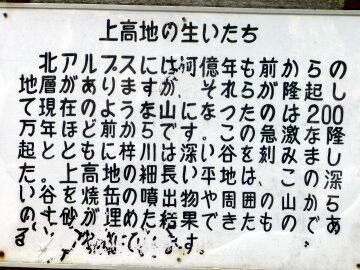 上高地の生いたち
北アルプスには何億年も前からの
地層がありますが、それらが隆起し
て現在のような山になったのは200
万年ほど前からです。この急激な隆
起とともに梓川は深い谷を刻みまし
た。上高地の細長い平地はこの深
い谷を焼岳の噴出物や周囲の山から
の土砂が埋めた結果できたものであ
る